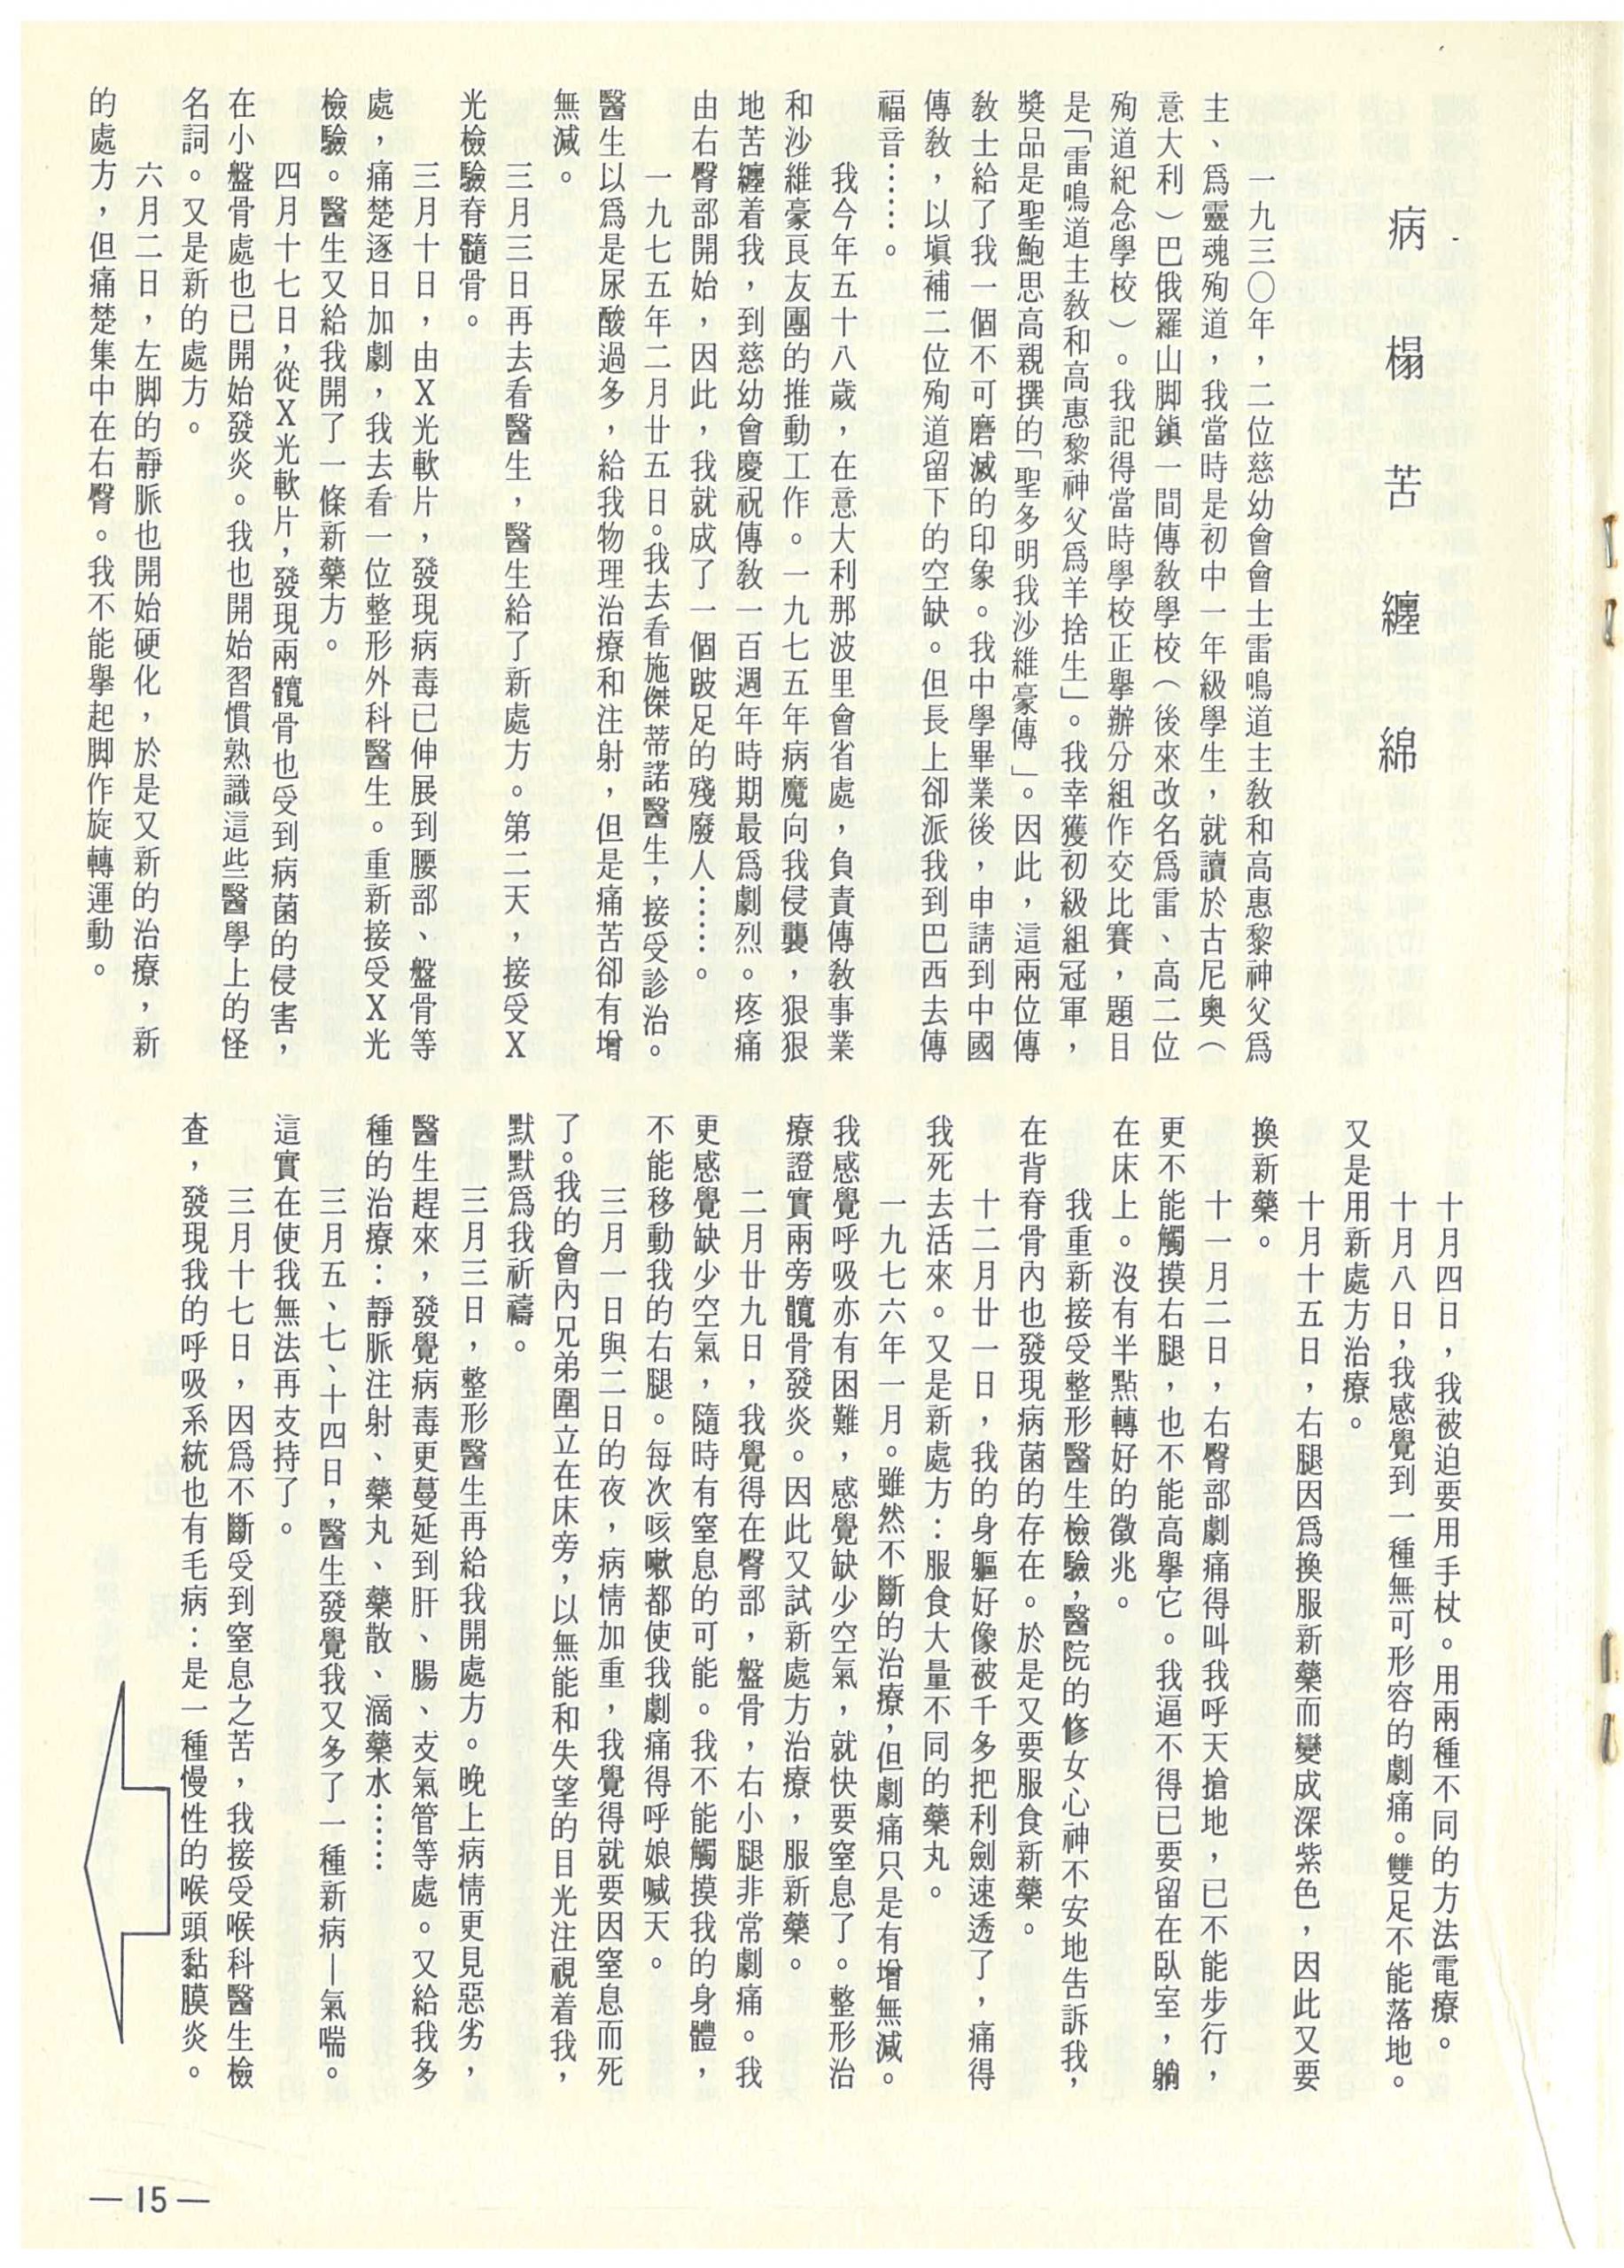 病榻苦纏綿
一九三〇年，二位慈幼會會士雷鳴道主教和高惠黎神父爲
主、爲靈魂殉道，我當時是初中一年級學生，就讀於古尼奧（
意大利）巴俄羅山脚鎮一間傳教學校（後來改名爲雷、高二位
殉道紀念學校）。我記得當時學校正擧辦分組作交比賽，題目
是「雷鳴道主教和高惠黎神父爲羊捨生」。我幸獲初級組冠軍，
奬品是聖鮑思高親撰的「聖多明我沙維豪傳」。因此，這兩位傳
教士給了我一個不可磨滅的印象。我中學畢業後，申請到中國
傳教，以塡補二位殉道留下的空缺。但長上卻派我到巴西去傳
福音……。
我今年五十八歲，在意大利那波里會省處，負責傳教事業
和沙維豪良友團的推動工作。一九七五年病魔向我侵襲，狠狠
地苦纏着我，到慈幼會慶祝傳教一百週年時期最爲劇烈。疼痛
由右臀部開始，因此，我就成了一個跛足的殘廢人……。
一九七五年二月廿五日。我去看施傑蒂諾醫生，接受診治。
醫生以爲是尿酸過多，給我物理治療和注射，但是痛苦卻有增
無減。
三月三日再去看醫生，醫生給了新處方。第二天，接受X
光檢驗脊髓骨。
三月十日，由X光軟片，發現病毒已伸展到腰部、盤骨等
處，痛楚逐日加劇，我去看一位整形外科醫生。重新接受X光
檢驗。醫生又給我開了一條新藥方。
四月十七日，從X光軟片，發現兩髖骨也受到病菌的侵害，
在小盤骨處也已開始發炎。我也開始習慣熟識這些醫學上的怪
名詞。又是新的處方。
六月二日，左脚的靜脈也開始硬化，於是又新的治療，新
的處方，但痛楚集中在右臀。我不能擧起脚作旋轉運動。
十月四日，我被迫要用手杖。用兩種不同的方法電療。
十月八日，我感覺到一種無可形容的劇痛。雙足不能落地。
又是用新處方治療。
十月十五日，右腿因爲換服新藥而變成深紫色，因此又要
換新藥。
十一月二日，右臀部劇痛得叫我呼天搶地，已不能步行，
更不能觸摸右腿，也不能高擧它。我逼不得已要留在臥室，躺
在床上。沒有半點轉好的徵兆。
我重新接受整形醫生檢驗，醫院的修女心神不安地告訴我，
在背脊骨內也發現病菌的存在。於是又要服食新藥。
十二月廿一日，我的身軀好像被千多把利劍速透了，痛得
我死去活來。又是新處方：服食大量不同的藥丸。
一九七六年一月。雖然不斷的治療，但劇痛只是有增無減。
我感覺呼吸亦有困難，感覺缺少空氣，就快要窒息了。整形治
療證實兩旁髖骨發炎。因此又試新處方治療，服新藥。
二月廿九日，我覺得在臀部，盤骨，右小腿非常劇痛。我
更感覺缺少空氣，隨時有窒息的可能。我不能觸摸我的身體，
不能移動我的右腿。每次咳嗽都使我劇痛得呼娘喊天。
三月一日與二日的夜，病情加重，我覺得就要因窒息而死
了。我的會內兄弟圍立在床旁，以無能和失望的目光注視着我，
默默爲我祈禱。
三月三日，整形醫生再給我開處方。晚上病情更見惡劣，
醫生趕來，發覺病毒更蔓延到肝、腸、支氣管等處。又給我多
種的治療：靜脈注射、藥丸、藥散、滴藥水……
三月五、七、十四日，醫生發覺我又多了一種新病—氣喘。
這實在使我無法再支持了。
三月十七日，因爲不斷受到窒息之苦，我接受喉科醫生檢
查，發現我的呼吸系統也有毛病：是一種慢性的喉頭黏膜炎。
—15—